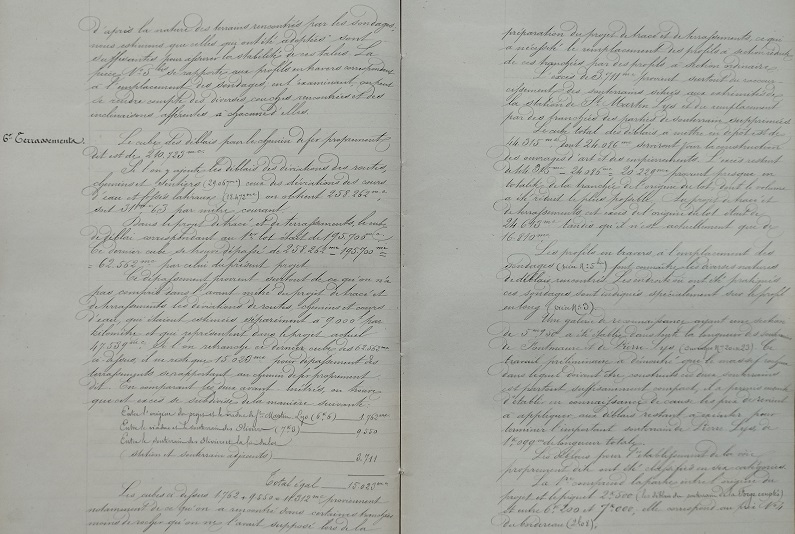 d'après la nature des terrains rencontrés par les sondages,
nous estimons que celles qui ont été adoptées sont
suffisantes pour assurer la stabilité de ces talus. La
pièce N° 5 se rapporte aux profils en travers correspondant
à l'emplacement des sondages, en l'examinant, on peut
se rendre compte des diverses couches rencontrées et des
inclinaisons affectées à chacune d'elles.
6° Terrassements.
Le cube des déblais pour le chemin de fer proprement
dit est de 210.723
Si l'on y ajoute les déblais des déviations des routes,
chemins et sentiers ceux des dérivations des cours
d'eau et fossés latéraux on obtient 258.262
soit par mètre courant.
Dans le projet de tracé et de terrassements, le cube
de déblai correspondant au 1er lot était de 195.700
Ce dernier cube se trouve dépassé de 258.262 – 195.700
= 62.562 par celui du présent projet.
Ce dépassement provient surtout de ce qu'on n'a
pas compris dans l'avant-métré du projet de tracé et
de terrassements, les déviations de routes, chemins et cours
d'eau, qui étaient estimées séparément à 9000 par
kilomètre et qui représentent dans le projet actuel
47.539 Si l'on retranche ce dernier cube des 62.562
ci-dessus, il ne reste que 15.023 pour dépassement des
terrassements se rapportant au chemin de fer proprement
dit. En comparant les deux avant-métrés, on trouve
que cet excès se subdivise de la manière suivante:
Entre l'origine du projet et le viaduc de St Martin Lys 1.762
Entre le viaduc et le souterrain 9.550
Entre le souterrain et la fin du lot
(station et souterrain adjacents) 3.711
Total égal 15.023
Les cubes ci-dessus 1.762 + 9.550 = 11.312 proviennent
notamment de ce qu'on a rencontré dans certaines tranchées
moins de roches qu'on ne l'avait supposé lors de la
préparation du projet de tracé et de terrassements, ce qui
a nécessité le remplacement des profils à section réduite
de ces tranchées par des profils à section ordinaire.
L'excès de 3.711 provient surtout du raccour-
cissement des souterrains situés aux extrémités de
la station de St Martin Lys et du remplacement
par des tranchées des parties de souterrain supprimées.
Le cube total des déblais à mettre en dépôt est de
44.315 dont 24.086 serviront pour la construction
des ouvrages d'art et des empierrements. L'excès restant
de 44.315 – 24.086 = 20.229 provient presque en
totalité de la tranchée de l'origine du lot, dont le volume
a été réduit le plus possible. Au projet de tracé et
de terrassements, cet excès de l'origine du lot était de
tandis qu'il n'est actuellement que de
16.810
Les profils en travers, à l'emplacement des
sondages font connaître les diverses natures
de déblais rencontrés. Les endroits où ont été pratiqués
ces sondages sont indiqués spécialement sur le profil
en long
Une galerie de reconnaissance ayant une section
de a été établie dans toute la longueur du souterrain
de et de Pierre Lys Ce
travail préliminaire a démontré que le massif
dans lequel doivent être construits ces deux souterrains
est partout suffisamment compact, il a permis aussi
d'établir en connaissance de cause les prix de revient
à appliquer aux déblais restant à exécuter pour
terminer l'important souterrain de Pierre Lys à
1.099 de longueur totale.
Les déblais pour l'établissement de la voie
proprement dite ont été classés en six catégories.
La 1re comprend la partie entre l'origine du
projet et le piquet 2.500
et entre 6.200 et 7.000, elle correspond au prix N° 4
du bordereau